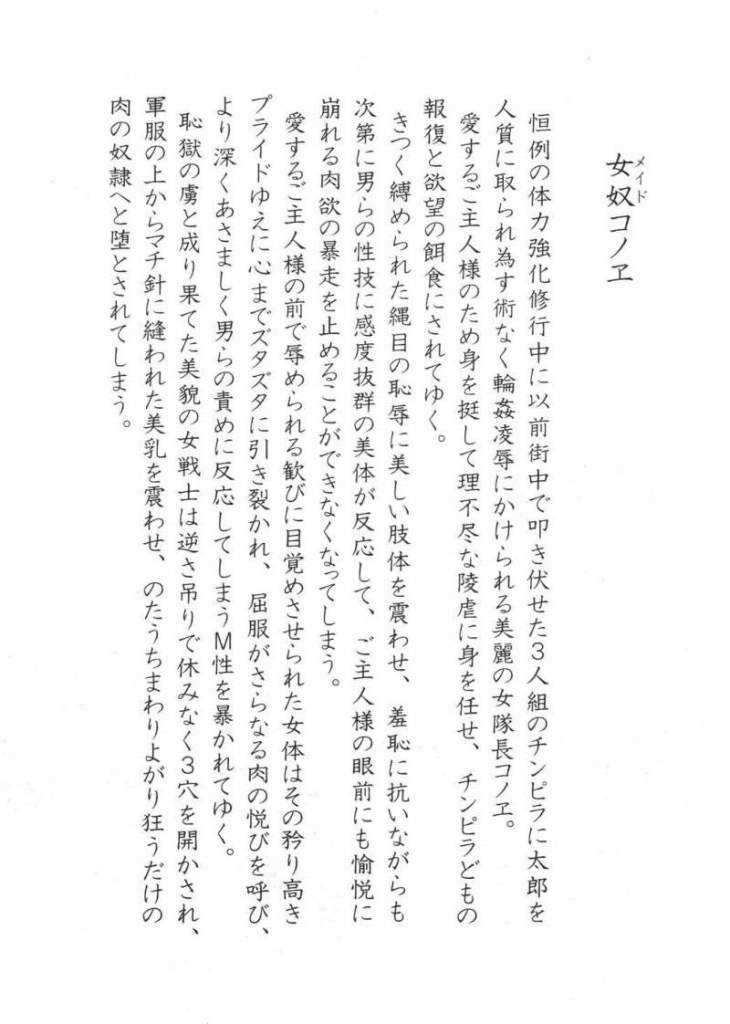 女奴コノヱ
メイド
恒例の体力強化修行中に以前街中で叩き伏せた３人組のチンピラに太郎を
人質に取られ為す術なく輪姦凌辱にかけられる美麗の女隊長コノヱ。
愛するご主人様のため身を挺して理不尽な陵虐に身を任せ、チンピラどもの
報復と欲望の餌食にされてゆく。
きつく縛められた縄目の恥辱に美しい肢体を震わせ、羞恥に抗いながらも
次第に男らの性技に感度抜群の美体が反応して、ご主人様の眼前にも愉悦に
崩れる肉欲の暴走を止めることができなくなってしまう。
愛するご主人様の前で辱められる歓びに目覚めさせられた女体はその矜り高き
プライドゆえに心までズタズタに引き裂かれ、屈服がさらなる肉の悦びを呼び、
より深くあさましく男らの責めに反応してしまうＭ性を暴かれてゆく。
恥獄の虜と成り果てた美貌の女戦士は逆さ吊りで休みなく３穴を開かされ、
軍服の上からマチ針に縫われた美乳を震わせ、のたうちまわりよがり狂うだけの
肉の奴隷へと堕とされてしまう。